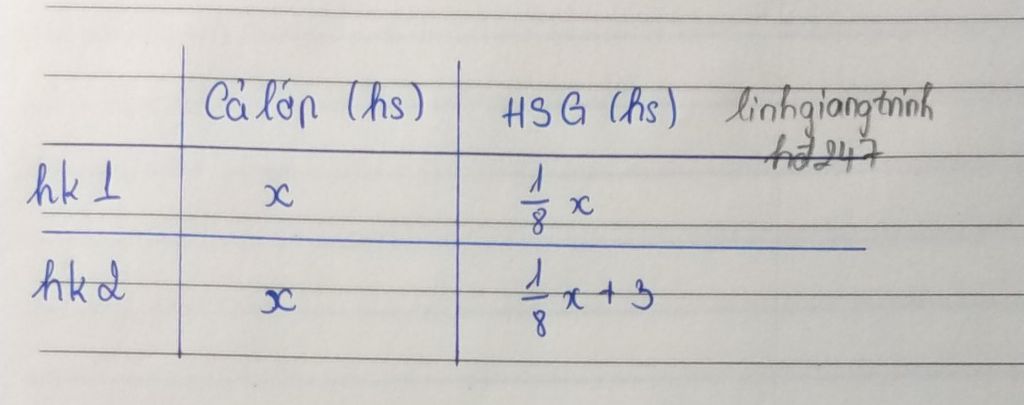 Cả lớp (hs) HSG (hs) linhgiangtrinh
hđ247
hk 1 x 1/8 x
hk 2 x 1/8 x + 3